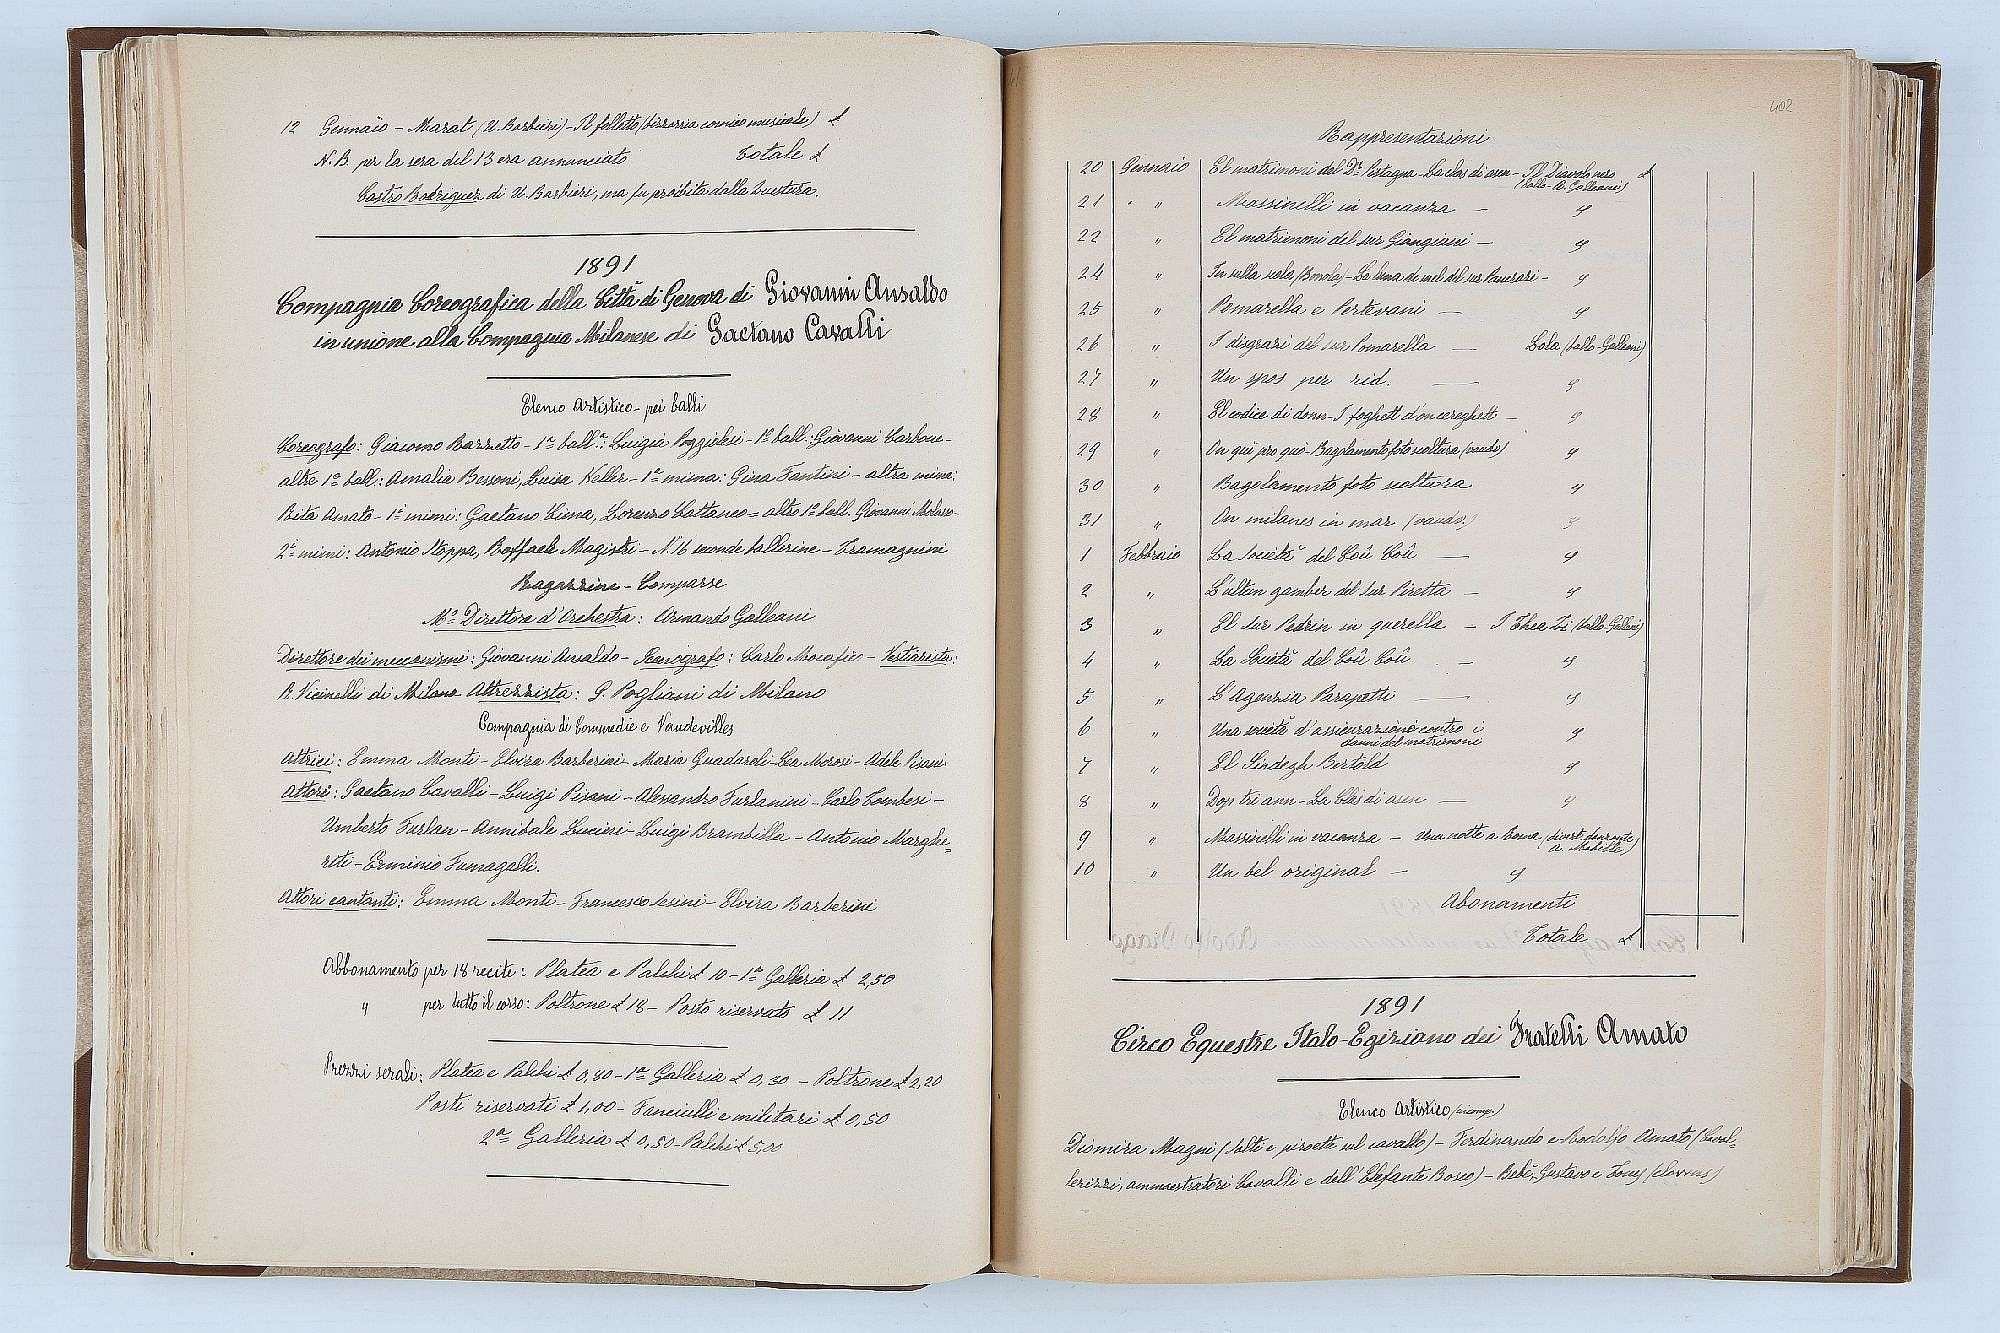 12 Gennaio – Marat (U. Barbieri) – Il folletto (bizzarria comico musicale) £
N.B. per la sera del 13 era annunciato Totale £
Castro Rodriguez di U. Barbieri, ma fu proibito dalla Questura.
1891
Compagnia Coreografica della Città di Genova di Giovanni Ansaldo
in unione alla Compagnia Milanese di Gaetano Cavalli
Elenco Artistico – pei balli
Coreografo: Giacomo Razzetto – 1a ball.a: Luigia Poggiolesi – 1o ball.: Giovanni Carbone –
altre 1e ball.: Amalia Bessoni, Luisa Keller – 1a mima: Gina Fantini – altra mima:
Rita Amato – 1i mimi: Gaetano Cima, Lorenzo Cattaneo = altro 1o ball. Giovanni Molasso
2i mimi: Antonio Noppa, Raffaele Magistri – N. 16 seconde ballerine – Tramagnini
Ragazzine – Comparse
Mo Direttore d'Orchestra: Armando Galleani
Direttore dei meccanismi: Giovanni Ansaldo – Scenografo: Carlo Mocafico – Vestiarista:
R. Vicinelli di Milano Attrezzista: G. Pogliani di Milano
Compagnia di Commedie e Vaudevilles
Attrici: Emma Monti – Elvira Barberini – Maria Guadaroli – Lea Morosi – Adele Pisani
Attori: Gaetano Cavalli – Luigi Pisani – Alessandro Furlanini – Carlo Tombesi –
Umberto Furlan – Annibale Lucini – Luigi Brambilla – Antonio Marghe=
reti – Erminio Fumagalli.
Attori cantanti: Emma Monti – Francesco Iesini – Elvira Barberini
Abbonamento per 18 recite: Platea e Palchi £ 10 – 1a Galleria £ 2,50
" per tutto il corso: Poltrone £ 18 – Posto riservato £ 11
Prezzi serali: Platea e Palchi £ 0,80 – 1a Galleria £ 0,30 – Poltrone £ 2,20
Posti riservati £ 1,00 – Fanciulli e militari £ 0,50
2a Galleria £ 0,50 – Palchi £ 5,00
402
Rappresentazioni
20 Gennaio El matrimoni del Dr. Pestagna – La clas di asen – Il Diavolo nero £
(ballo – A. Galleani)
21 " Massinelli in vacanza – "
22 " El matrimoni del sur Giangiani – "
24 " In sulla scala – La luna de mel del sur Panerari – "
25 " Pomarella e Pertevani – "
26 " I disgrazi del sur Pomarella – Lola (ballo – Galleani)
27 " Un spos per rid. – "
28 " El codice di donn – I foghett d'on cereghett – "
29 " On qui pro quò – Bagolamento foto scoltura (vaude) "
30 " Bagolamento foto scoltura "
31 " On milanes in mar (vaud.) "
1 Febbraio La Società del Coû Coû – "
2 " L'ultem gamber del sur Piretta – "
3 " El sur Pedrin in querella – I Thea Zi (ballo – Galleani)
4 " La Società del Coû Coû – "
5 " L'Agenzia Parapatti – "
6 " Una società d'assicurazione contro i "
danni del matrimoni
7 " El Sindegh Bertold "
8 " Dop tri ann – La Clas di asen – "
9 " Massinelli in vacanza – Una notte a Roma (divert. danzante
A. Mabille)
10 " Un bel original – "
Abonamenti
Totale £
1891
Circo Equestre Italo-Egiziano dei Fratelli Amato
Elenco Artistico (incomp.)
Diomira Magni (salti e piroette sul cavallo) – Ferdinando e Rodolfo Amato (Caval=
lerizzi, ammaestratori Cavalli e dell'Elefante Bosco) – Bebè, Gustavo e Tony (clowns)